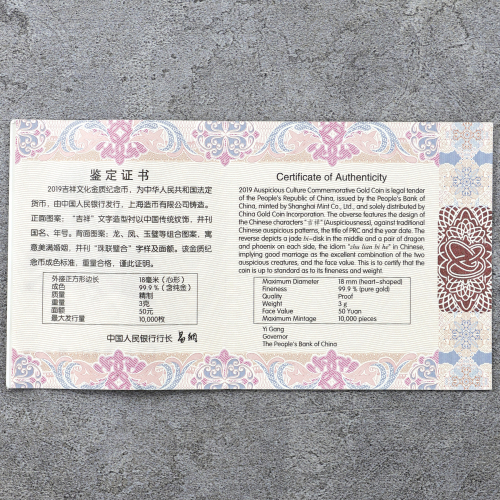 鉴定证书
2019吉祥文化金质纪念币，为中华人民共和国法定
货币，由中国人民银行发行，上海造币有限公司铸造。
正面图案：“吉祥”文字造型衬以中国传统纹饰，并刊
国名、年号。背面图案：龙、凤、玉璧等组合图案，寓
意美满婚姻，并刊“珠联璧合”字样及面额。该金质纪
念币成色标准，重量合格，谨此证明。
外接正方形边长 18毫米（心形）
成色 99.9%（含纯金）
质量 精制
重量 3克
面额 50元
最大发行量 10,000枚
中国人民银行行长 易纲
Certificate of Authenticity
2019 Auspicious Culture Commemorative Gold Coin is legal tender
of the People's Republic of China, issued by the People's Bank of
China, minted by Shanghai Mint Co., Ltd., and solely distributed by
China Gold Coin Incorporation. The obverse features the design of
the Chinese characters "吉祥" (Auspiciousness), against traditional
Chinese auspicious patterns, the title of PRC and the year date. The
reverse depicts a jade bi-disk in the middle and a pair of dragon
and phoenix on each side, the idiom "zhu lian bi he" in Chinese,
implying good marriage as the excellent combination of the two
auspicious creatures, and the face value. This is to certify that the
coin is up to standard as to its fineness and weight.
Maximum Diameter 18 mm (heart-shaped)
Fineness 99.9 % (pure gold)
Quality Proof
Weight 3 g
Face Value 50 Yuan
Maximum Mintage 10,000 pieces
Yi Gang
Governor
The People's Bank of China